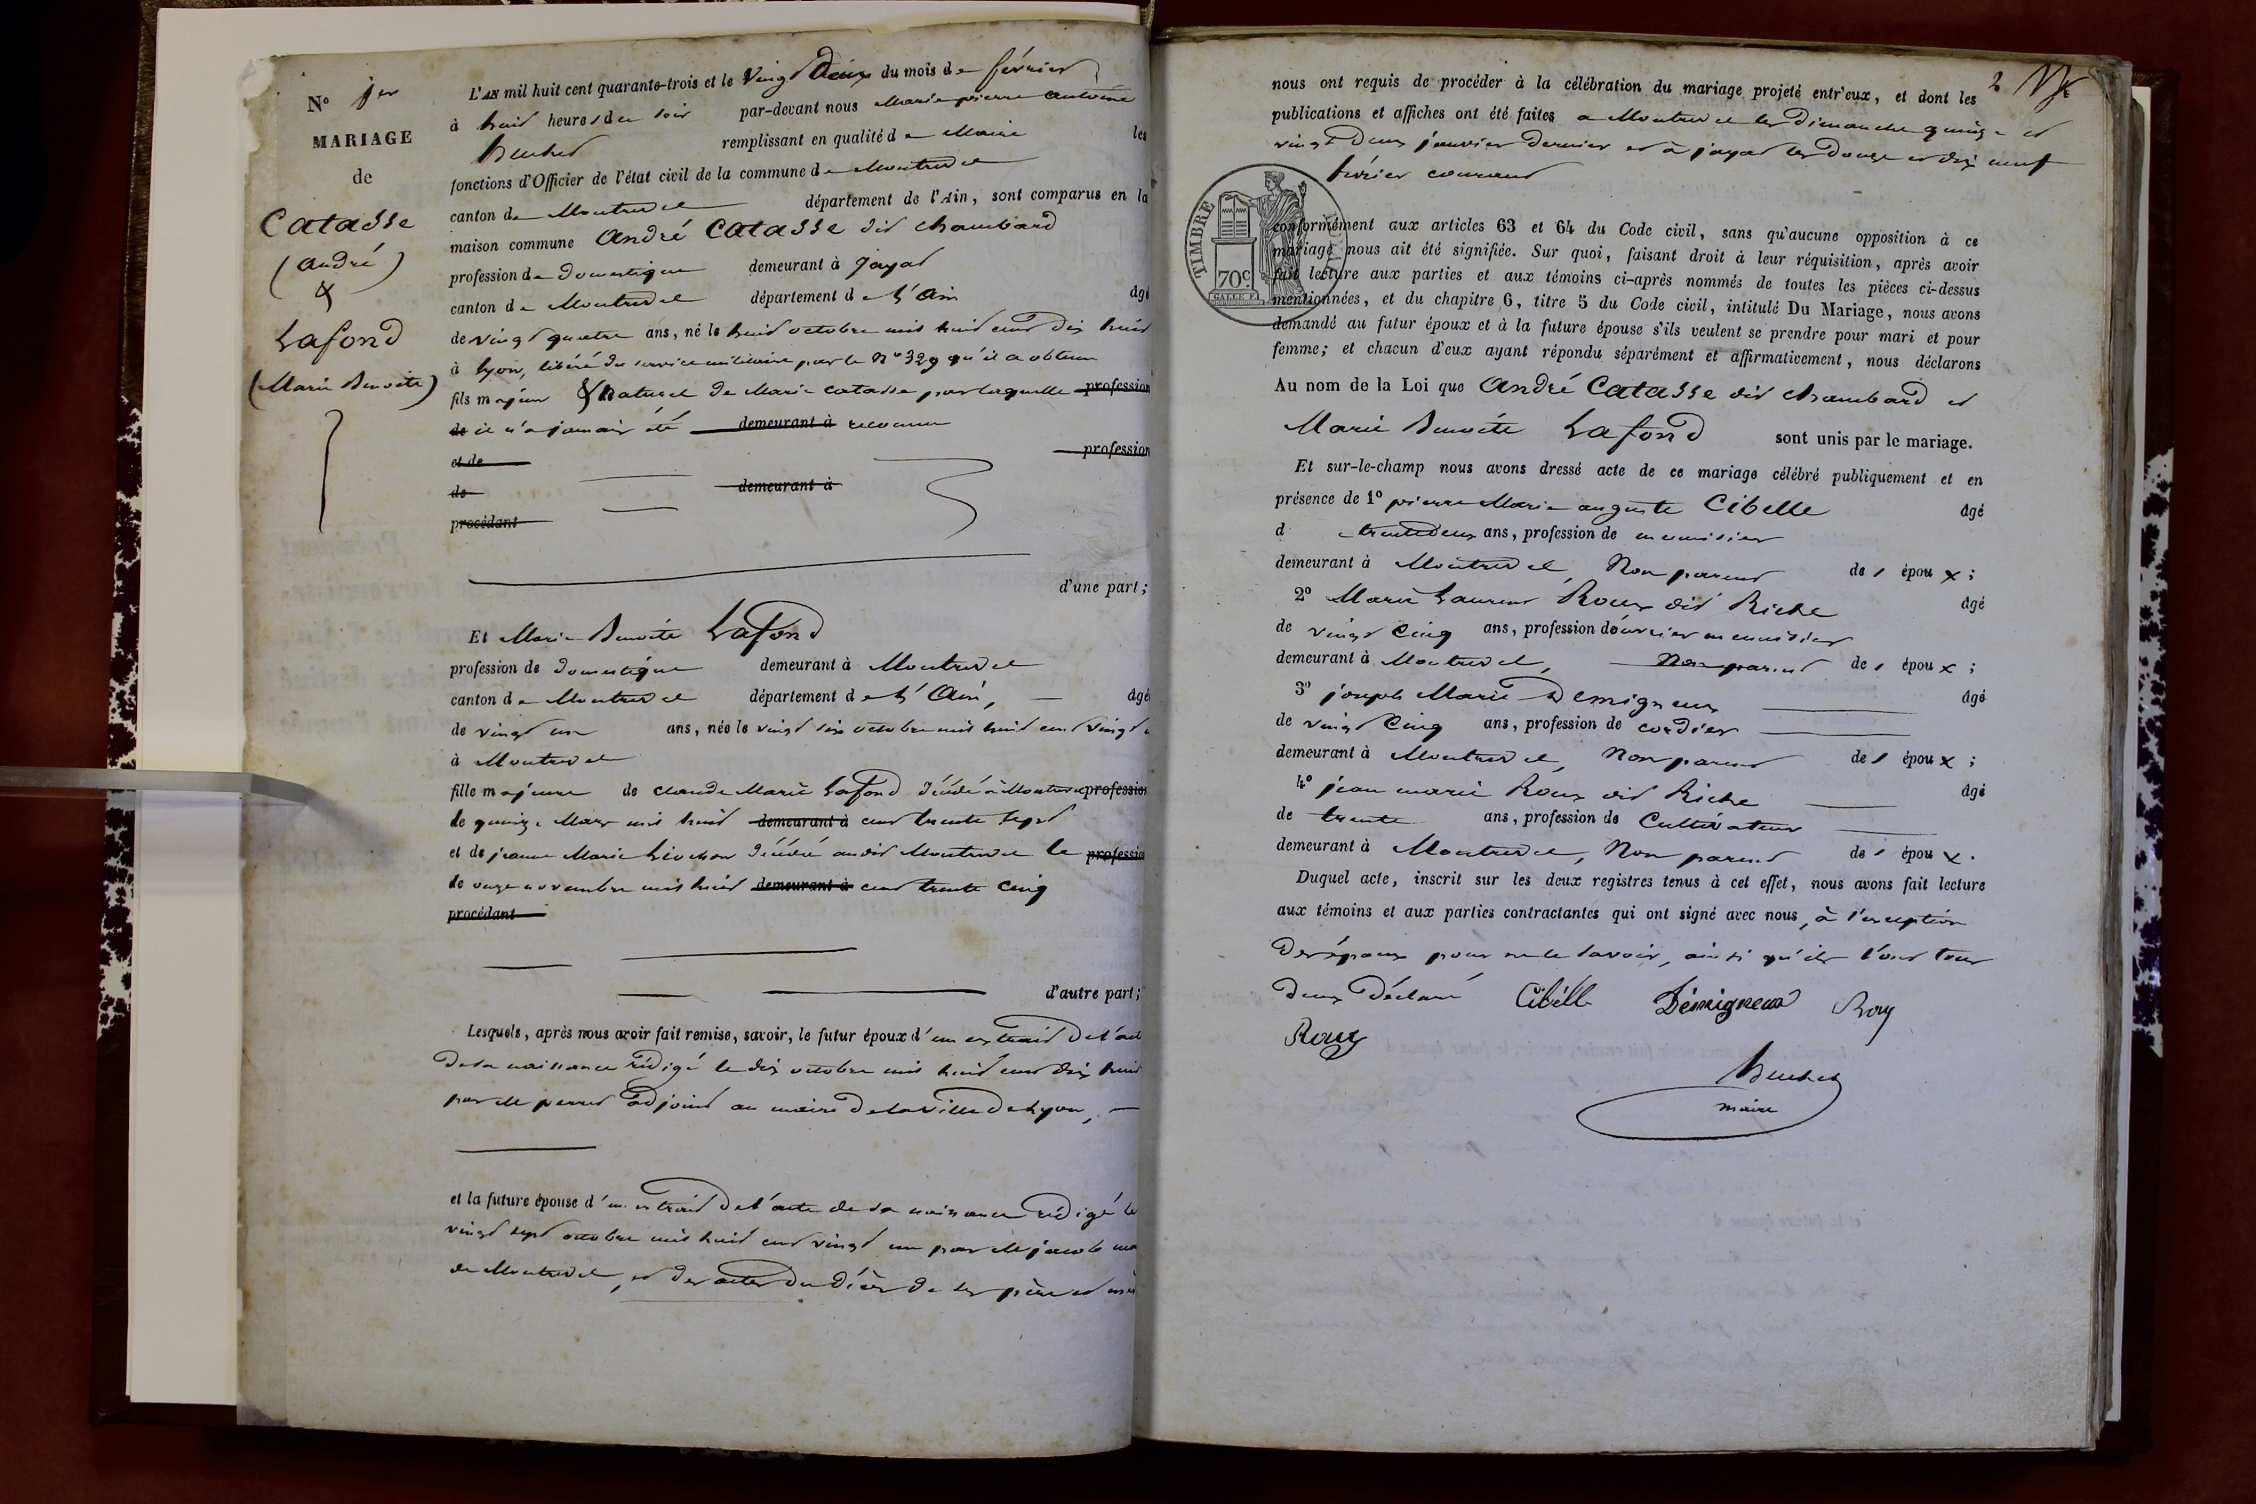 N° 1er
MARIAGE
de
Catasse
(André)
&
Lafond
(Marie Benoite)
L'AN mil huit cent quarante-trois et le vingt deux du mois de février
à huit heures du soir par-devant nous Marie pierre antoine
remplissant en qualité de Maire les
fonctions d'Officier de l'état civil de la commune de Montrevel
canton de Montrevel département de l'Ain, sont comparus en la
maison commune André Catasse dit chambard
profession de Domestique demeurant à Jayat
canton de Montrevel département de L'Ain âgé
de vingt quatre ans, né le huit octobre mil huit cent dix huit
à Lyon, libéré du service militaire par le N° 329 qu'il a obtenu
fils majeur & Naturel de Marie catasse par laquelle profession
de il n'a jamais été demeurant à reconnu
et de profession
de demeurant à
procédant
d'une part;
Et Marie Benoite Lafond
profession de domestique demeurant à Montrevel
canton de Montrevel département de L'Ain, âgée
de vingt un ans, née le vingt six octobre mil huit cent vingt
à Montrevel
fille majeure de claude Marie Lafond décédé à Montrevel profession
le quinze Mars mil huit demeurant à cent trente sept
et de jeanne Marie décédée audit Montrevel le profession
de onze novembre mil huit demeurant à cent trente cinq
procédant
d'autre part;
Lesquels, après nous avoir fait remise, savoir, le futur époux d'un extrait de l'acte
de sa naissance rédigé le dix octobre mil huit cent dix huit
par Mr adjoint au maire de la ville de Lyon,
et la future épouse d'un extrait de l'acte de sa naissance rédigé le
vingt sept octobre mil huit cent vingt un par Mr jacob
de Montrevel, et des actes du décès de ses père et mère
2
nous ont requis de procéder à la célébration du mariage projeté entr'eux, et dont les
publications et affiches ont été faites a Montrevel les Dimanche quinze et
vingt Deux janvier dernier et à jayat les Douze et dix neuf
février courant
TIMBRE ROYAL
70c.
conformément aux articles 63 et 64 du Code civil, sans qu'aucune opposition à ce
mariage nous ait été signifiée. Sur quoi, faisant droit à leur réquisition, après avoir
fait lecture aux parties et aux témoins ci-après nommés de toutes les pièces ci-dessus
mentionnées, et du chapitre 6, titre 5 du Code civil, intitulé Du Mariage, nous avons
demandé au futur époux et à la future épouse s'ils veulent se prendre pour mari et pour
femme; et chacun d'eux ayant répondu séparément et affirmativement, nous déclarons
Au nom de la Loi que André Catasse dit chambard et
Marie Benoite Lafond sont unis par le mariage.
Et sur-le-champ nous avons dressé acte de ce mariage célébré publiquement et en
présence de 1° pierre Marie auguste Cibelle âgé
de trente deux ans, profession de menuisier
demeurant à Montrevel, Non parent des époux;
2° Marie Laurent Roux dit Riche âgé
de vingt cinq ans, profession d'ouvrier menuisier
demeurant à Montrevel, Non parent des époux;
3° joseph Marie Demigneux âgé
de vingt Cinq ans, profession de cordier
demeurant à Montrevel, Non parent des époux;
4° jean marie Roux dit Riche âgé
de trente ans, profession de Cultivateur
demeurant à Montrevel, Non parent des époux.
Duquel acte, inscrit sur les deux registres tenus à cet effet, nous avons fait lecture
aux témoins et aux parties contractantes qui ont signé avec nous, à l'exception
des époux pour ne le savoir, ainsi qu'ils l'ont tous
deux déclaré Cibelle Démigneux Roux
Roux
maire